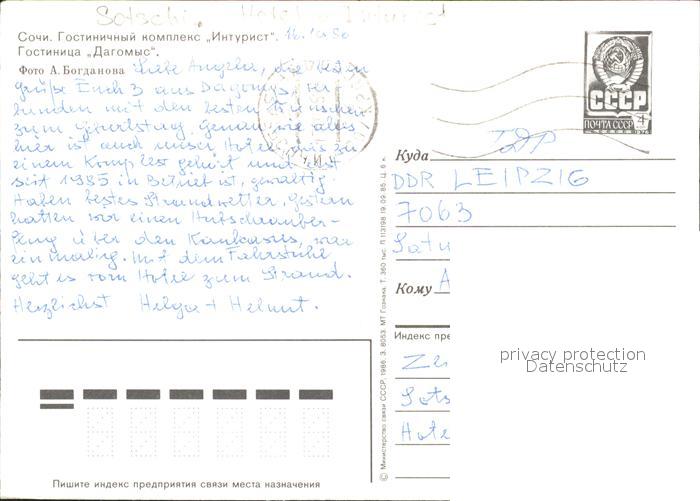 Сочи. Гостиничный комплекс „Интурист".
Гостиница „Дагомыс".
Фото А. Богданова
Liebe Angela, die besten
Grüße Euch 3 aus Dagomys, ver
bunden mit den besten Wünschen
zum Geburtstag. Genau wie alles
hier ist auch unser Hotel, das zu
einem Komplex gehört und erst
seit 1985 in Betrieb ist, gewaltig.
Haben bestes Strandwetter, gestern
hatten wir einen Hubschrauber-
flug über den Kaukasus, war
einmalig. Mit dem Fahrstuhl
geht es vom Hotel zum Strand.
Herzlichst Helga + Helmut.
СССР
ПОЧТА СССР 4
Куда
DDR LEIPZIG
7063
Кому
Индекс пре
Hote
privacy protection
Datenschutz
© Министерство связи СССР, 1986. З. 8053. МТ Гознака. Т. 360 тыс. П 113198 19.09.85. Ц. 6 к.
Пишите индекс предприятия связи места назначения